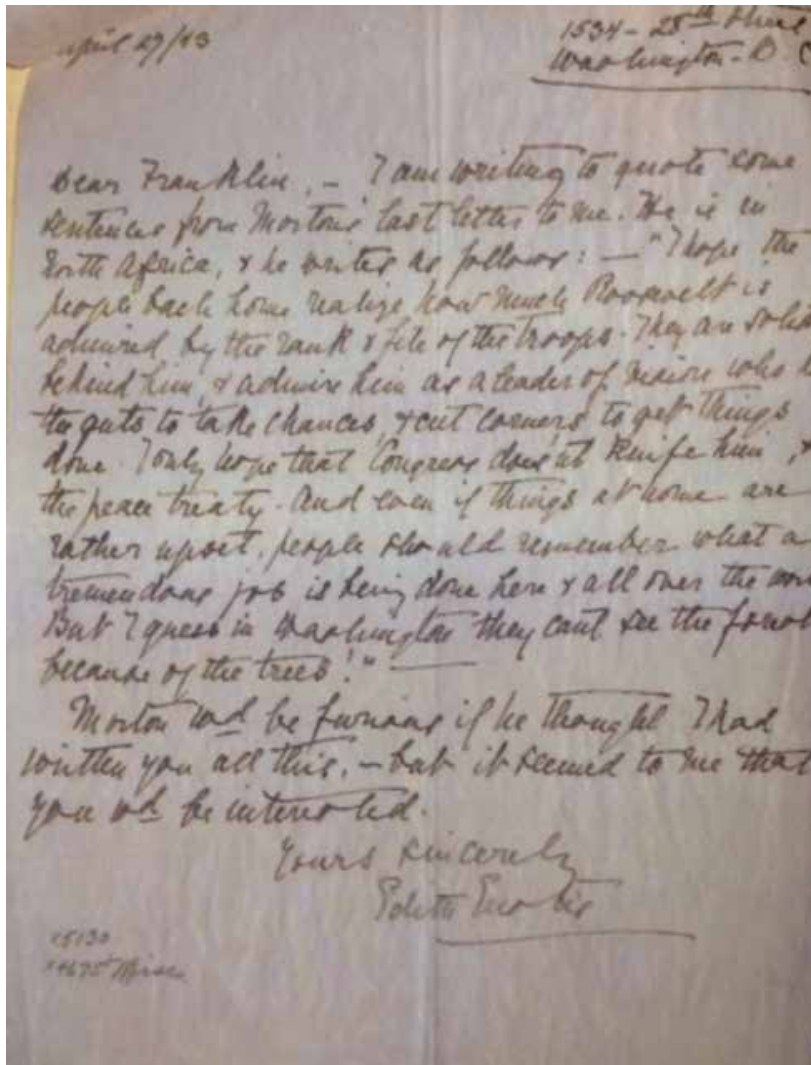 April 29/43
1534 - 28th Street
Washington - D. C
Dear Franklin, - I am writing to quote some
sentences from Morton's last letter to me. He is in
North Africa, & he writes as follows: - "I hope the
people back home realize how much Roosevelt is
admired by the rank & file of the troops. They are solid
behind him, & admire him as a leader of vision who
the guts to take chances, & cut corners to get things
done. I only hope that Congress does'nt knife him, &
the peace treaty. And even if things at home are
rather upset, people should remember what a
tremendous job is being done here & all over the wor
But I guess in Washington they cant see the forest
because of the trees!" -
Morton wd be furious if he thought I had
written you all this, - but it seemed to me that
you wd be interested.
Yours sincerely
Edith Eustis
15130